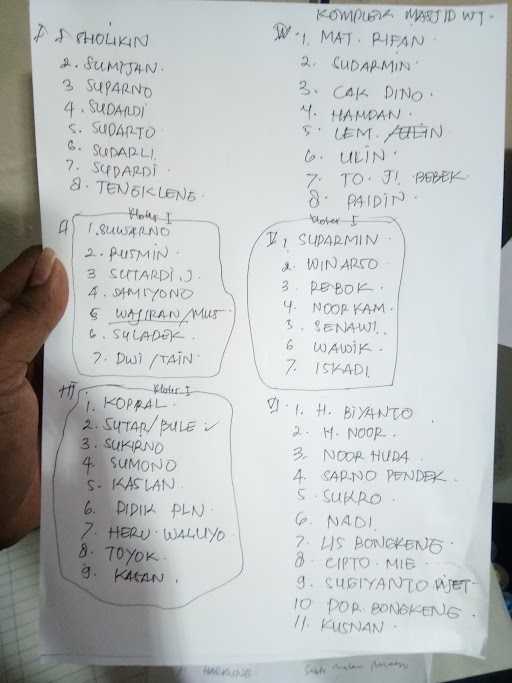 KOMPLEK MASJID WT.
I
SHOLIKIN
2. SUMIJAN.
3 SUPARNO
4. SUDARDI
5. SUDARTO
6. SUDARLI.
7. SUDARDI.
8. TENGKLENG.
II
Kloter I
1. SUWARNO
2. RUSMIN.
3 SUTARDI. J.
4. SAMIYONO
5 WAJIRAN/MUS
6. SULADEK.
7. DWI / TAIN.
III
Kloter I
1. KOPRAL.
2. SUTAR/BULE ✓
3. SUKIRNO
4. SUMONO
5. KASLAN.
6. DIDIK PLN.
7. HERU. WALUYO.
8. TOYOK.
9. KASAN.
IV. 1. MAT. RIFAN.
2. SUDARMIN.
3. CAK DINO.
4. HAMDAN.
5. LEM.
6. ULIN.
7. TO. JI. BEBEK.
8. PAIDIN.
Kloter I
V. 1 SUDARMIN.
2. WINARSO
3. REBOK.
4. NOORKAM.
5. SENAWI.
6 WAWIK.
7. ISKADI
VI. 1. H. BIYANTO
2. H. NOOR.
3. NOOR HUDA.
4. SARNO PENDEK.
5. SUKRO.
6. NADI.
7. LIS BONGKENG.
8 CIPTO. MIE.
9. SUGIYANTO
10 DOR BONGKENG.
11. KUSNAN.